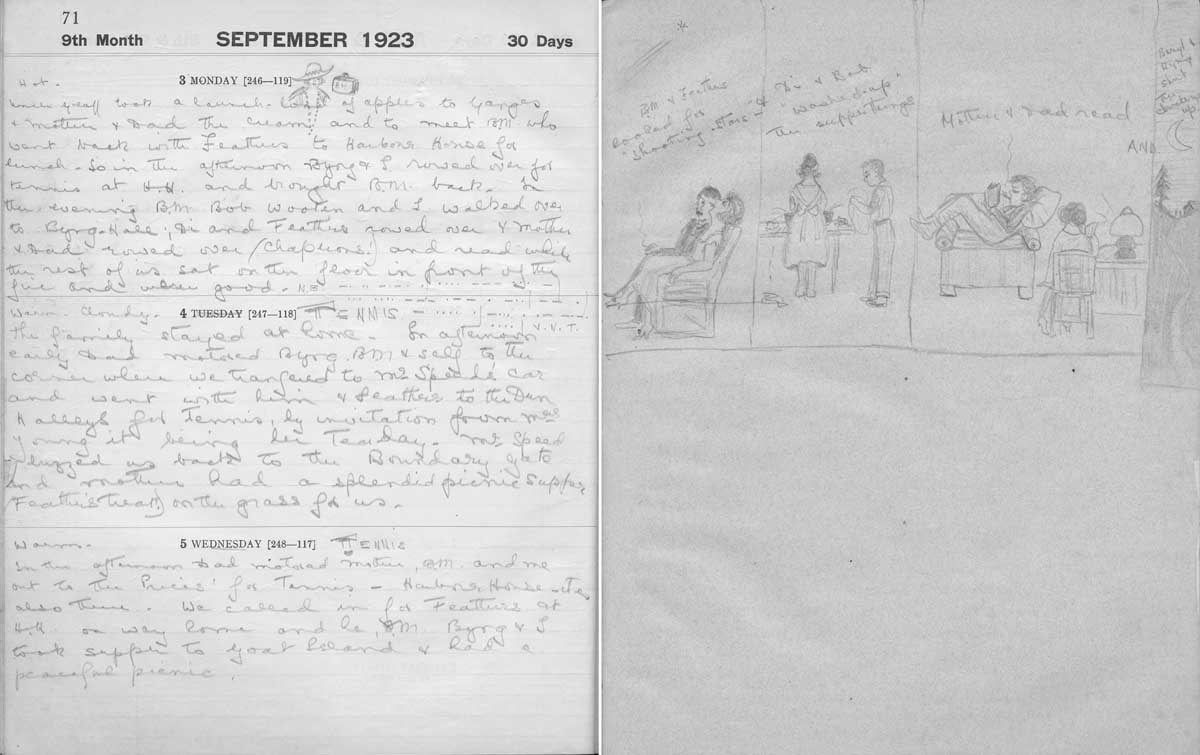 71
9th Month SEPTEMBER 1923 30 Days
Hot. 3 MONDAY [246—119]
took a launch load of apples to Ganges
& Mother & Dad the cream and to meet B.M. who
went back with Feathers to Harbour House for
lunch. So in the afternoon Byrg & I rowed over for
tennis at H.H. and brought B.M. back. In
the evening B.M. Bob Wooten and I walked over
to Byrg-Hall; Di and Feathers rowed over & Mother
& Dad rowed over (Chaperons!) and read while
the rest of us sat on the floor in front of the
fire and were good.
Warm. Cloudy. 4 TUESDAY [247—118] TENNIS
The family stayed at home. In afternoon
early Dad motored Byrg, B.M & self to the
corner where we transfered to Mr Speed's car
and went with him & Feathers to the
for Tennis, by invitation from Mrs
Young it being her Teaday. Mr Speed
us back to the Boundary gate
and mother had a splendid picnic supper
(Feather's treat) on the grass for us.
Warm. 5 WEDNESDAY [248—117] TENNIS
In the afternoon Dad motored Mother, B.M. and me
out to the Prices' for Tennis — Harbour House-ites
also there. We called in for Feathers at
H.H. on way home and he, B.M. Byrg & I
took supper to Goat Island & had a
peaceful picnic.
B.M & Feathers
looked for
"shooting-stars" &
Di & Bob
"washed up"
the supper things
Mother & Dad read
AND